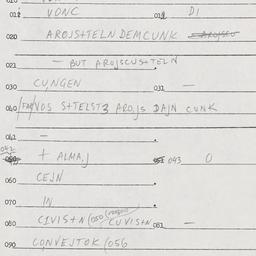 012 VONC 01[?] DI
020 AROJS+TELN DEMCUNK
021 — BUT AROJSCUS+TELN
030 CUNGEN 031 —
040 VOS S+TELST3 AROJS DAJN CUNK
041 —
042 + ALMAJ 043 O
060 CEJN
070 IN
080 CIVIS+N (050 CUVIS+N 081 —
090 CONVEJTOK (056